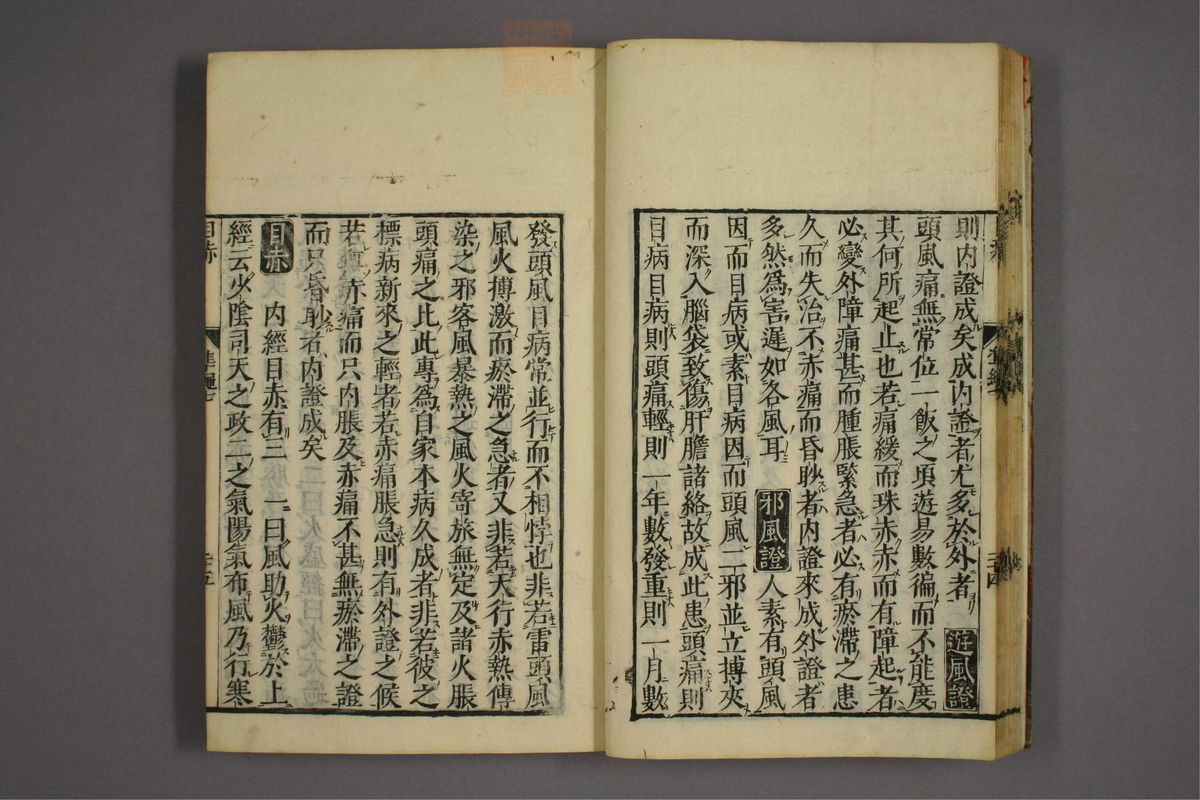 則內證成矣成內證者尤多於外者遊風證
頭風痛無常位一飯之頃遊易數徧而不能度
其何所起止也若痛緩而珠赤赤而有障起者
必變外障痛甚而腫脹緊急者必有瘀滯之患
久而失治不赤痛而昏眇者內證來成外證者
多然爲害遲如各風耳邪風證人素有頭風
因而目病或素目病因而頭風二邪並立搏夾
而深入腦袋致傷肝膽諸絡故成此患頭痛則
目病目病則頭痛輕則一年數發重則一月數
發頭風目病常並行而不相悖也非若雷頭風
風火搏激而瘀滯之急者又非若天行赤熱傳
染之邪客風暴熱之風火寄旅無定及諸火脹
頭痛之比此專爲自家本病久成者非若彼之
標病新來之輕者若赤痛脹急則有外證之候
若無赤痛而只內脹及赤痛不甚無瘀滯之證
而只昏眇者內證成矣
目赤內經目赤有三一曰風助火鬱於上
經云少陰司天之政二之氣陽氣布風乃行寒
目赤
準繩七
二十五